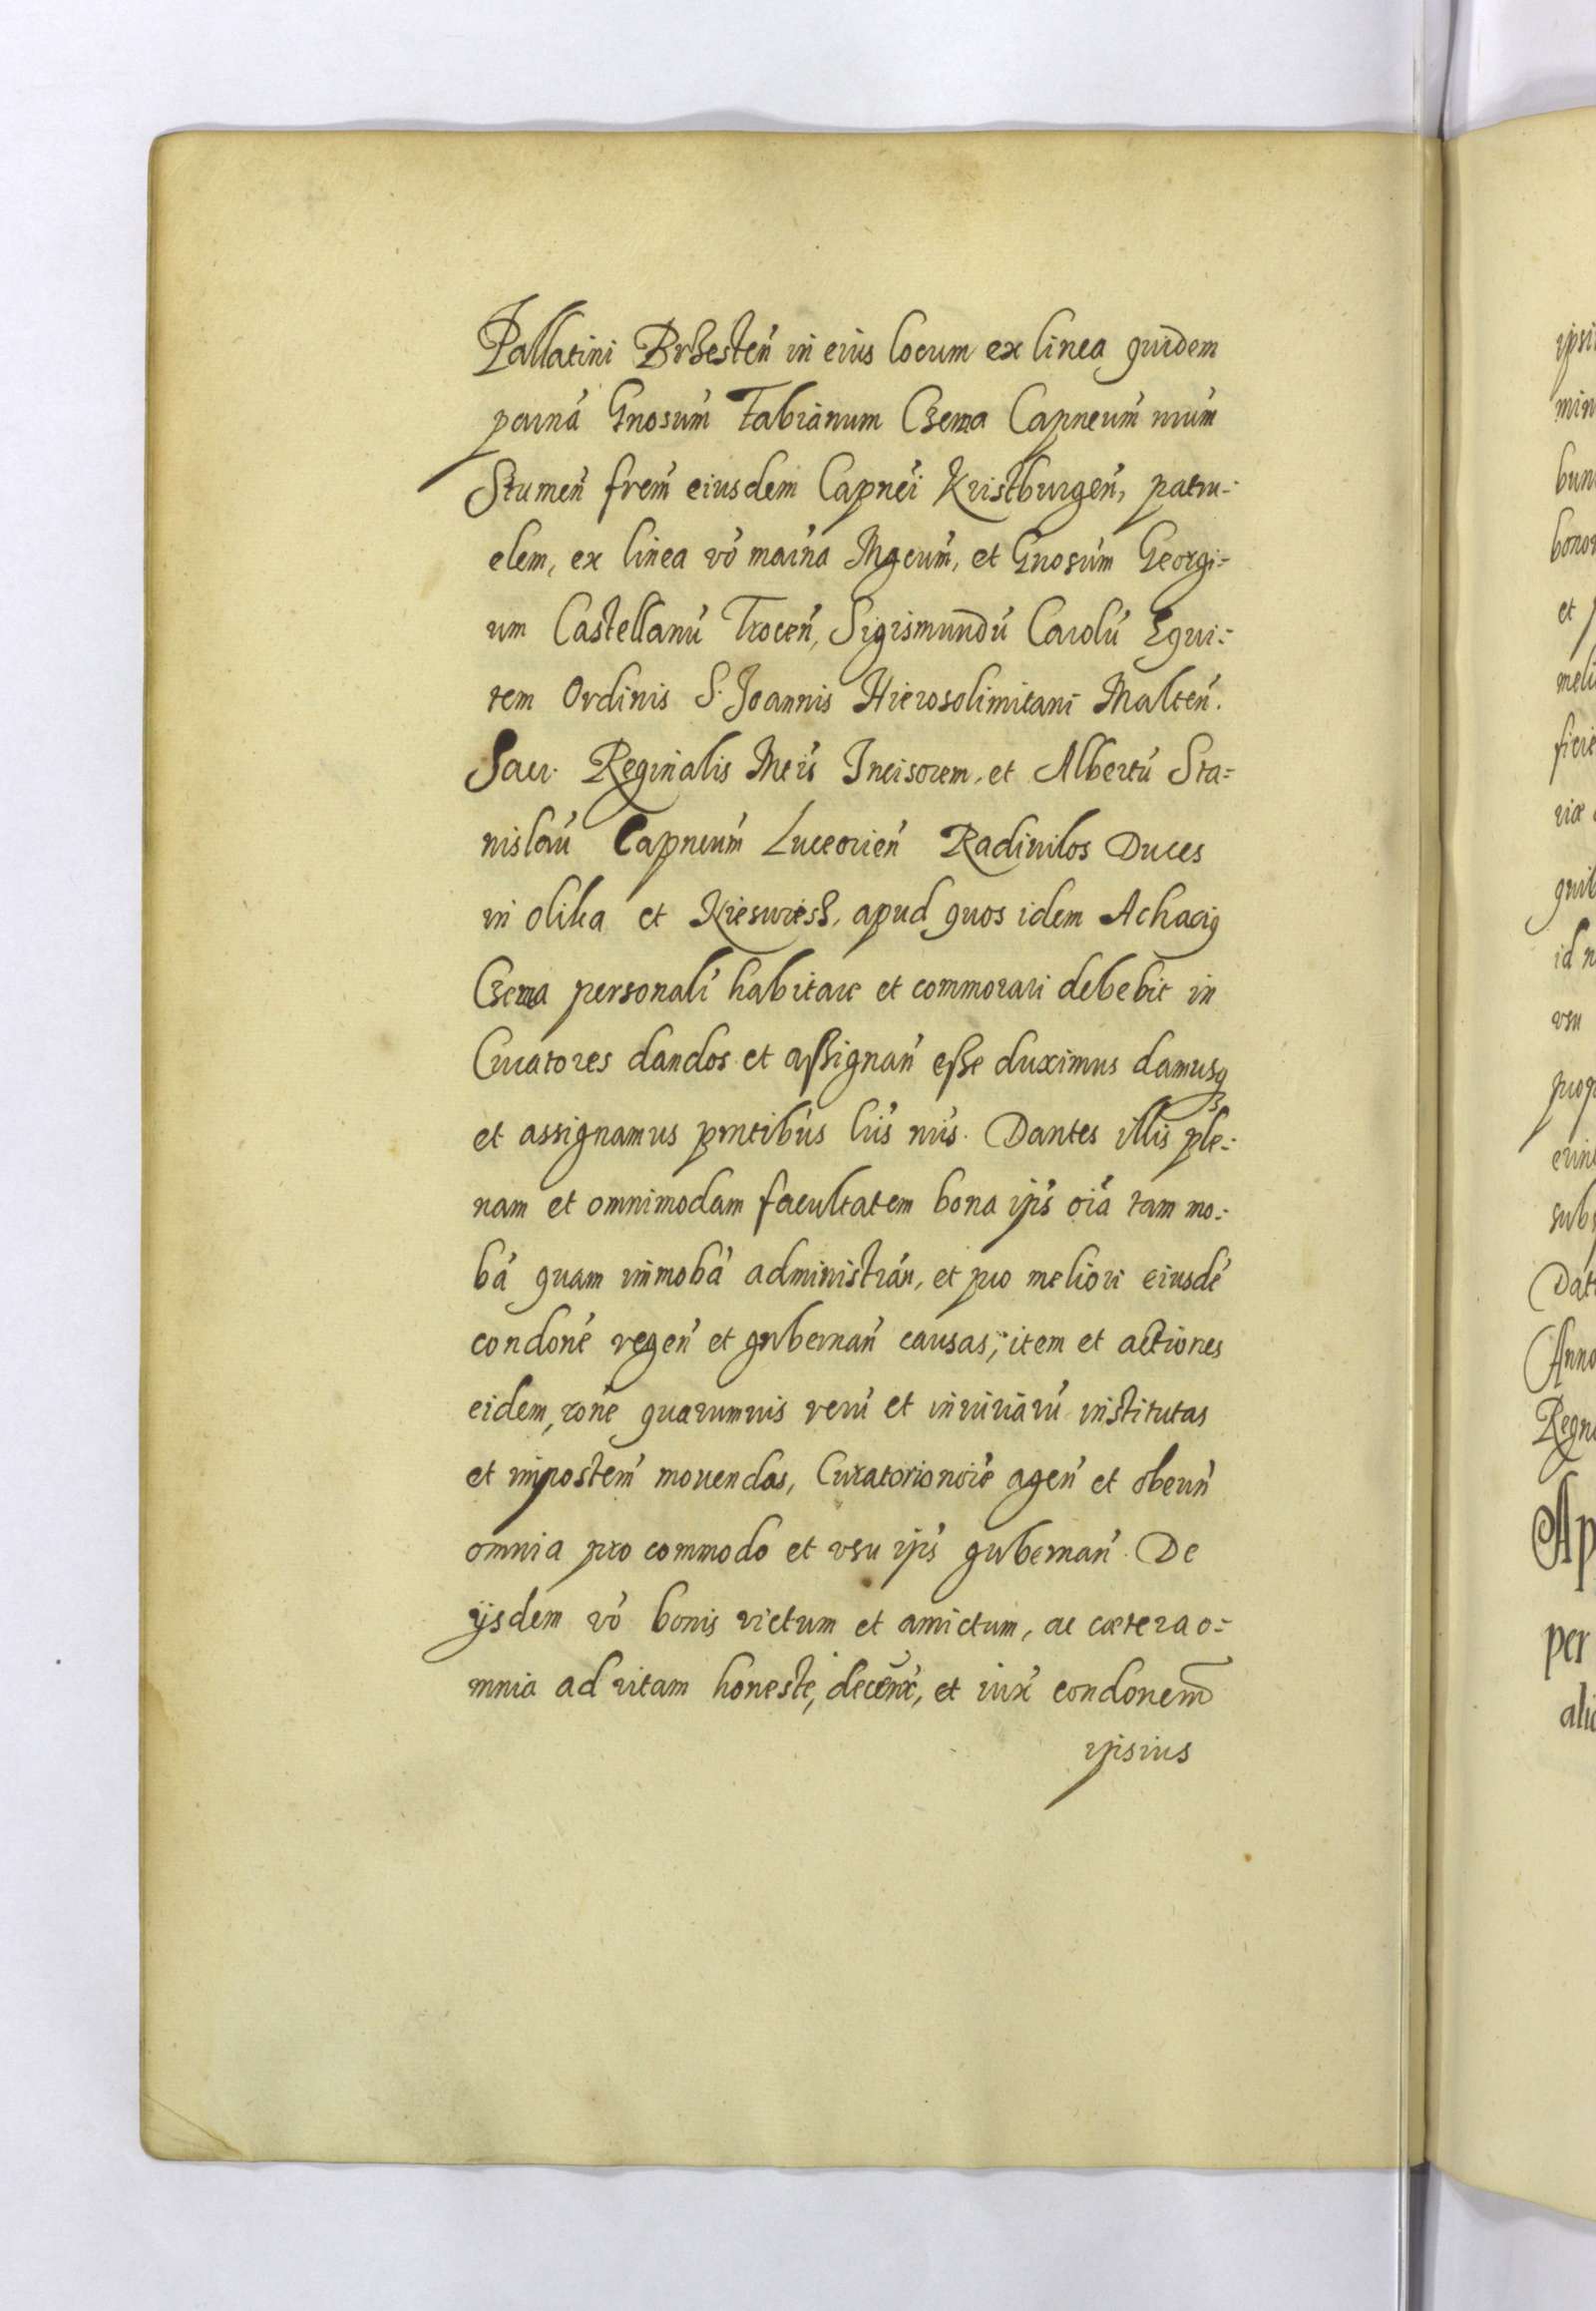 Pallatini Brzesten̄ in eius locum ex linea quidem
patnā Gnosum̄ Fabianum Czema Capneum̄ nrum̄
Stumen̄ frem̄ eiusdem Capnei Kristburgen̄, patru-:
elem, ex linea vō matna Mgcum̄, et Gnosum̄ Georgi-:
um Castellanū Trocen̄, Sigismundū Carolū Equi-:
tem Ordinis S. Joannis Hierosolimitani Malten̄.
Sacr. Reginalis Mtis Incisorem, et Albertū Sta-:
nislaū Capneum̄ Luceorien̄ Radiuilos Duces
in Olika et Niesuiesz, apud quos idem Achaciꝰ
Czema personalr̄ habitare et commorari debebit in
Curatores dandos et assignan̄ esse duximus damusqꝫ
et assignamus pn̄tibus lris̄ nris̄. Dantes illis ple-:
nam et omnimodam facultatem bona ips̄ oīa tam mo-:
bā quam immobā administran̄, et pro meliori eiusdē
condonē regen̄ et gubernan̄ causas, item et actiones
eidem, rone quarumuis rerū et iniuriarū institutas
et imposterm̄ mouendas, Curatorio noīe agen̄ et obeun̄
omnia pro commodo et vsu ips̄ gubernan̄. De
ijsdem vō bonis victum et amictum, ac cætera o-:
mnia ad vitam honeste, decenr̄, et iux̄ condonem̄
ipsius
ipsi
min
bun
bonor
et p
meli
fieri
riæ
quib
id n
vsu
prop
subs
Dat
Anno
Regn
Ap
per
ali